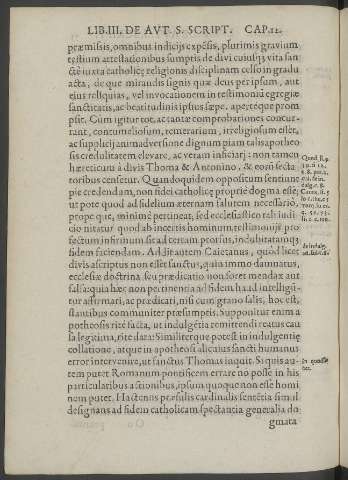 LIB. III. DE AVT. S. SCRIPT. CAP. 12.
præmissis, omnibus indicijs expēsis, plurimis grauium
testium attestationibus sumptis de diui cuiusq; vita san
ctè iuxta catholicę religionis disciplinam celso in gradu
acta, de que mirandis signis quæ deus per ipsum, aut
eius reliquias, vel inuocationem in testimoniū egregiæ
sanctitatis, ac beatitudinis ipsius sæpe, aperteque prom
psit. Cum igitur tot, ac tantæ comprobationes concur-
rant, contumeliosum, temerarium, irreligiosum esset,
ac supplicij animaduersione dignum piam talis apotheo
sis credulitatem eleuare, ac veram insiciari: non tamen
hæreticum à diuis Thoma & Antonino, & eorū secta
toribus censetur. Quandoquidem oppositum sentiunt
pie credendam, non fidei catholicę propriè dogma esse;
ut pote quod ad fidelium æternam salutem necessariò,
prope que, minimè pertineat, sed ecclesiastico tali iudi-
cio nitatur quod ab incertis hominum testimonijs pro
fectum infirmum sit ad certam prorsus, indubitatamq;
fidem faciendam. Addit autem Caietanus, quòd licet
diuis ascriptus non esset sanctus, quin immo damnatus,
ecclesiæ doctrina seu prædicatio non foret mendax aut
falsa: quia hæc non pertinentia ad fidem haud intelligū-
tur affirmari, ac prædicari, nisi cum grano salis, hoc est,
stantibus communiter præsumptis. Supponitur enim a
potheosis ritè facta, ut indulgētia remittendi reatus cau
sa legitima, rite data: Similiterque potest in indulgentię
collatione, atque in apotheosi alicuius sancti humanus
error interuenire, ut sanctus Thomas inquit. Si quis au-
tem putet Romanum pontificem errare no posse in his
particularibus actionibus, ipsum quoque non esse homi
nem putet. Hactenus præfulis cardinalis sentētia simul
designans ad fidem catholicam spectantia generalia do
gmata
Quod. 9. q.
de indulg.
in quodli-
bet.